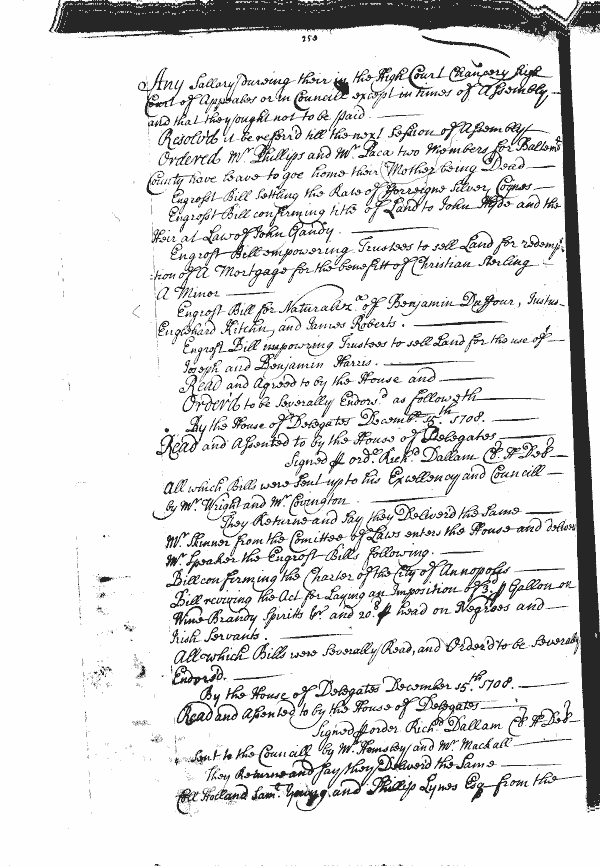 250
Any Sallary dureing their in the High Court Chancery high
Court of Appeales or in Councill except in times of Assembly
and that they ought not to be paid
Resolved it be referrd till the next Session of Assembly
Ordered Mr. Phillips and Mr. Paca two Members for Baltemo
County have leave to goe home their Mother being Dead
Engrost Bill Settling the Rate of fforreigne Silver Coynes
Engrost Bill confirming title of Land to John Hyde and the
Heir at Law of John Gandy.
Engrost Bill empowering Trustees to sell Land for redemp-
:tion of A Mortgage for the benefitt of Christian Sterling
A Minor
Engrost Bill for Naturaliz.on of Benjamin Duffour, Justus
Englehard Kitchin, and James Roberts.
Engrost Bill impowering Trustees to sell Land for the use of
Joseph and Benjamin Harris.
Read and Agreed to by the House and
Order'd to be Severally Endors.d as followeth
By the House of Delegates Decemb.r 15.th 1708.
Read and Assented to by the House of Delegates
Signed p ord.r Rich.d Dallam Cl. H. Del.
All which Bills were Sent up to his Excellency and Councill
by Mr. Wright and Mr. Covington
They Returne and Say they Deliverd the Same
Mr. Skinner from the Comittee of Laws enters the House and delivers
Mr. Speaker the Engrost Bills following.
Bill confirming the Charter of the City of Annopolis
Bill reviving the Act for Laying an Imposition of 3.d p Gallon on
Wine Brandy Spirits &c. and 20.s p head on Negroes and
Irish Servants.
All which Bills were Severally Read, and Order'd to be Severally
Endorsd.
By the House of Delegates December 15.th 1708.
Read and Assented to by the House of Delegates
Signed p order Rich.d Dallam Cl. H. Del.
Sent to the Councill by Mr. Hemsley and Mr. Mackall
They Returne and Say they Deliverd the Same
Coll Holland Sam.l Young and Phillip Lynes Esq. from the